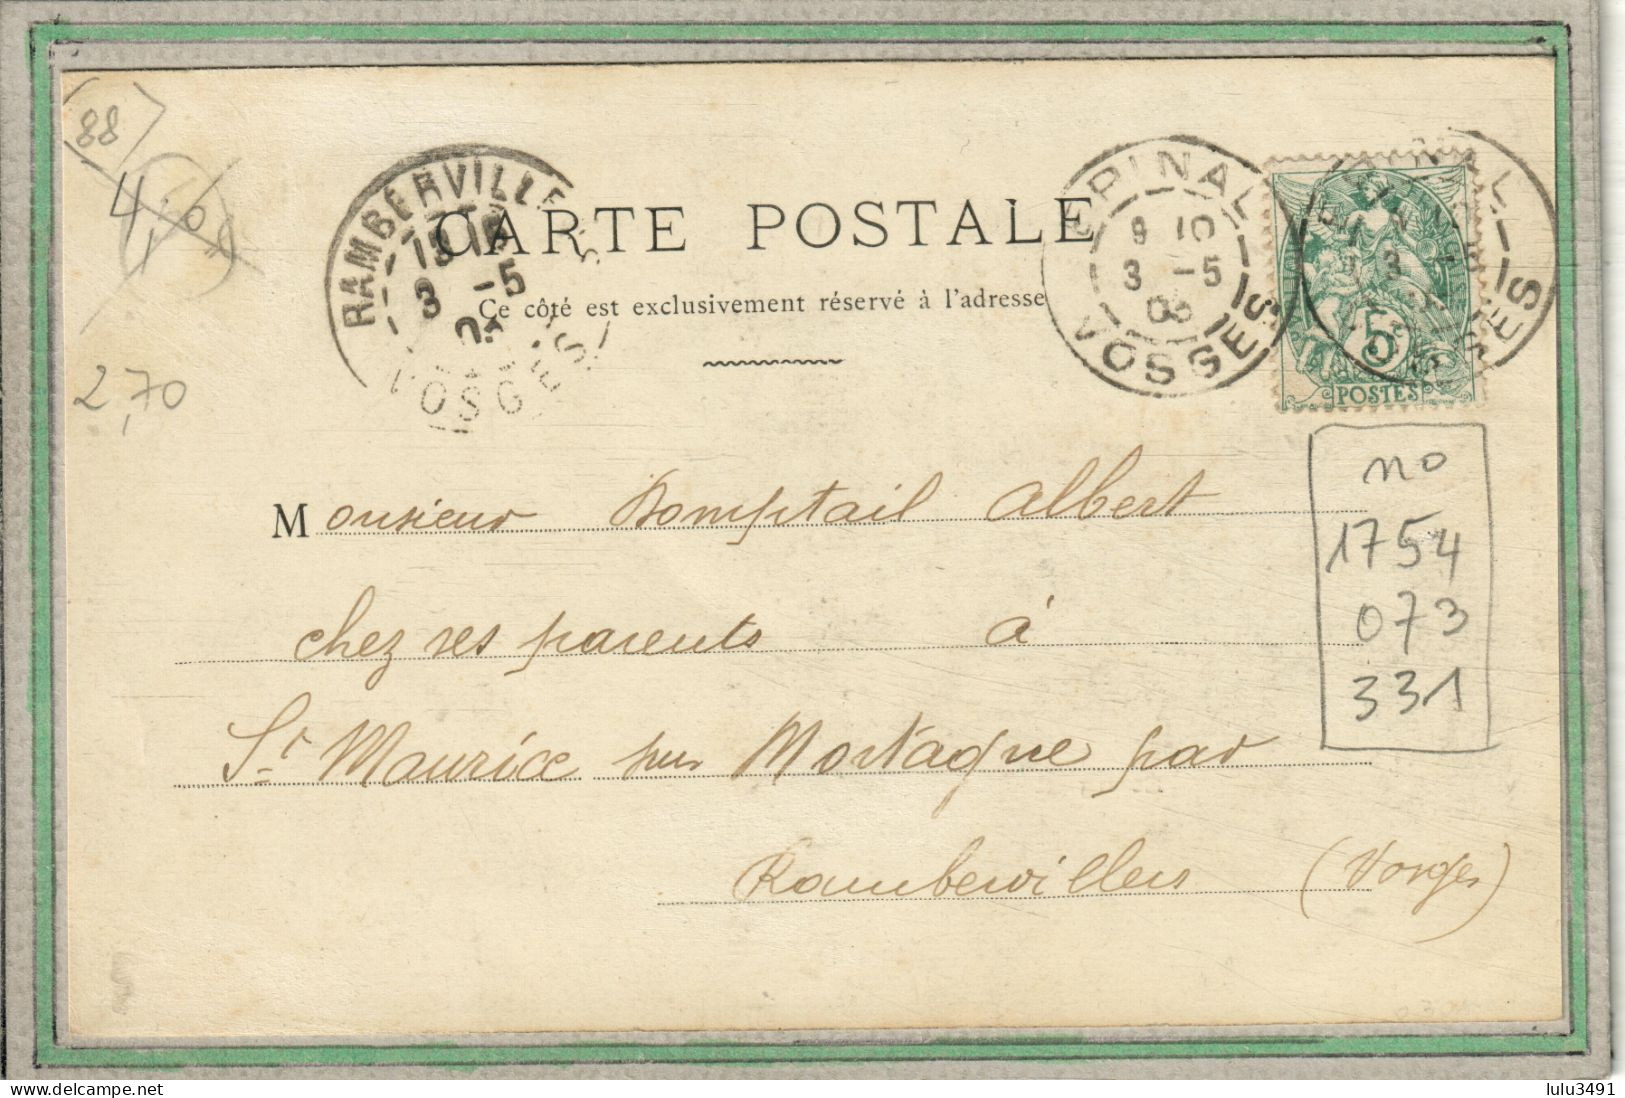 88
4,00
2,70
RAMBERVILLE
15 15
3 -5
03
VOSGES
CARTE POSTALE
Ce côté est exclusivement réservé à l'adresse
EPINAL
9 10
3 -5
03
VOSGES
5c
POSTES
no
1754
073
331
Monsieur Domptail Albert
chez ses parents à
St Maurice sur Mortagne par
Rambervillers (Vosges)
lulu3491